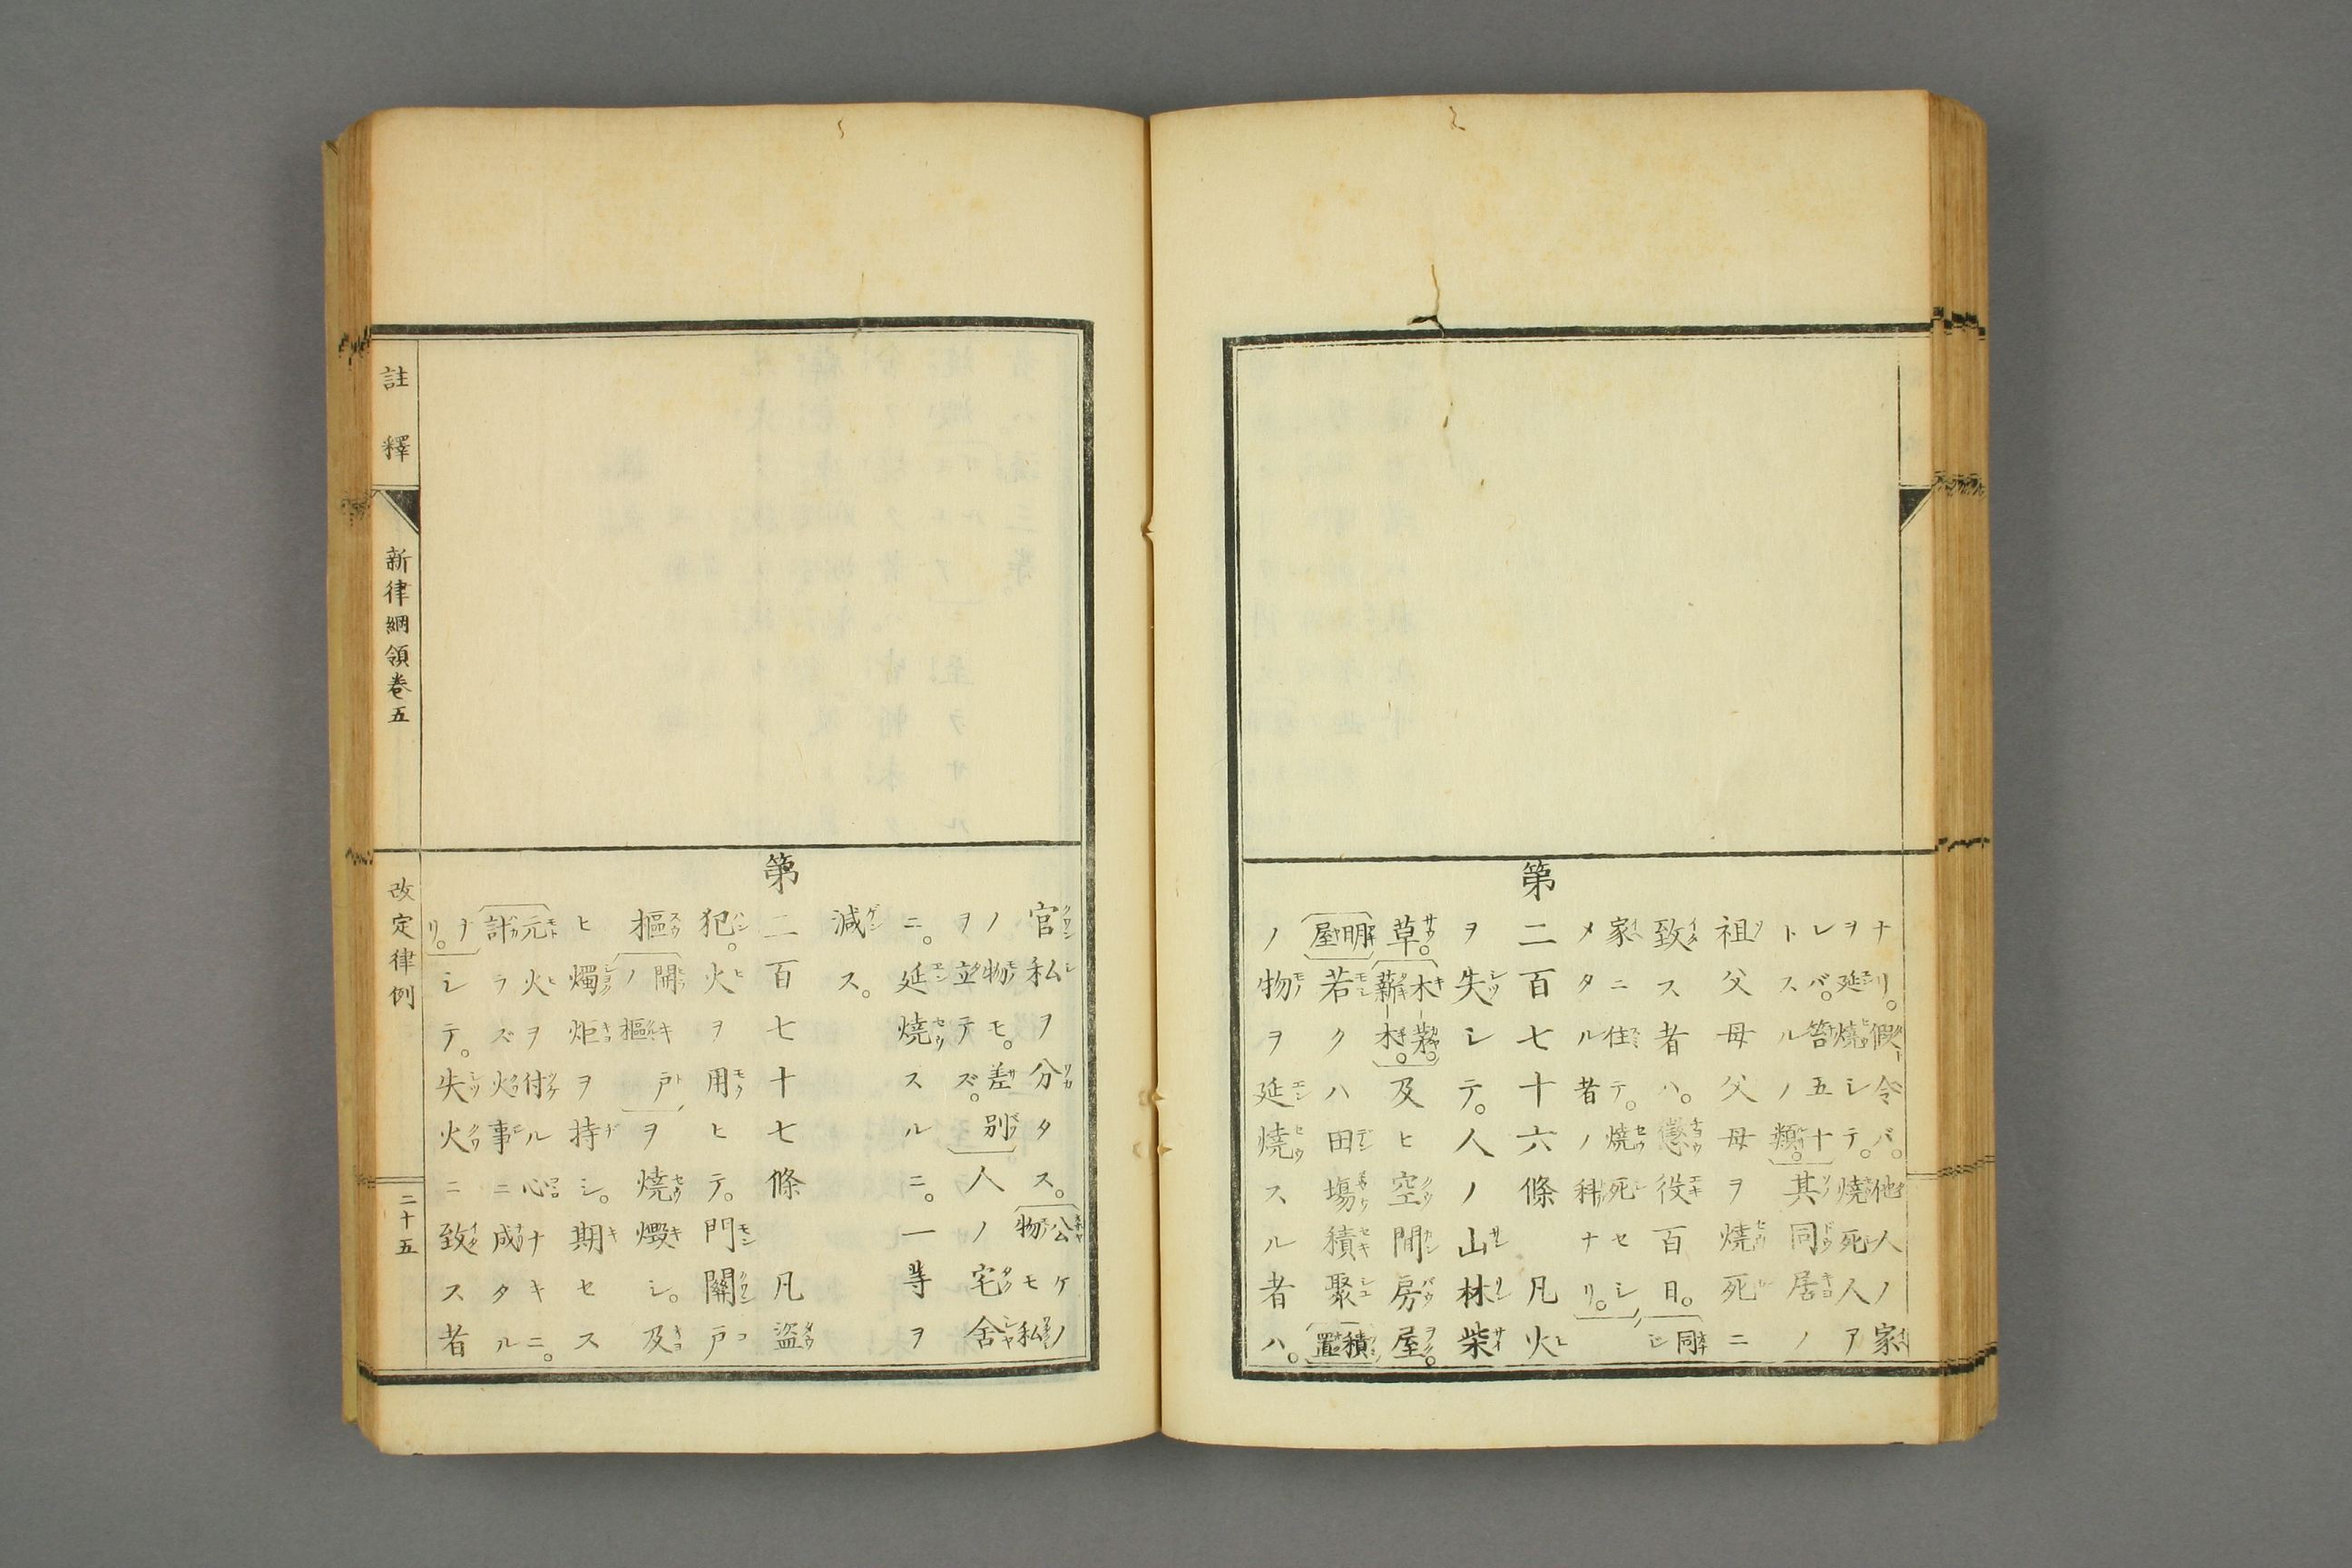 ナリ。假令バ。他人ノ家
ヲ延燒シテ。燒死人ア
レバ。笞五十
トスルノ類。其同居ノ
祖父母父母ヲ燒死ニ
致ス者ハ。懲役百日。同シ
家ニ住テ。燒死セシ
メタル者ノ科ナリ。
第二百七十六條 凡火
ヲ失シテ。人ノ山林柴
草。木蒭。薪木。及ヒ空閒房屋。
明屋若クハ田塲積聚積置
ノ物ヲ延燒スル者ハ。
官私ヲ分タス。公ケノ物モ私
ノ物モ。差別
ヲ立テズ。人ノ宅舍
ニ。延燒スルニ。一等ヲ
減ス。
第二百七十七條 凡盜
犯。火ヲ用ヒテ。門關戸
樞開キ戸ノ樞ヲ燒燬シ。及
ヒ燭炬ヲ持シ。期セス
元火ヲ付ル心ナキニ。
計ラズ火事ニ成タル
ナリ。シテ。失火ニ致ス者
註釋 新律綱領卷五 改定律例 二十五